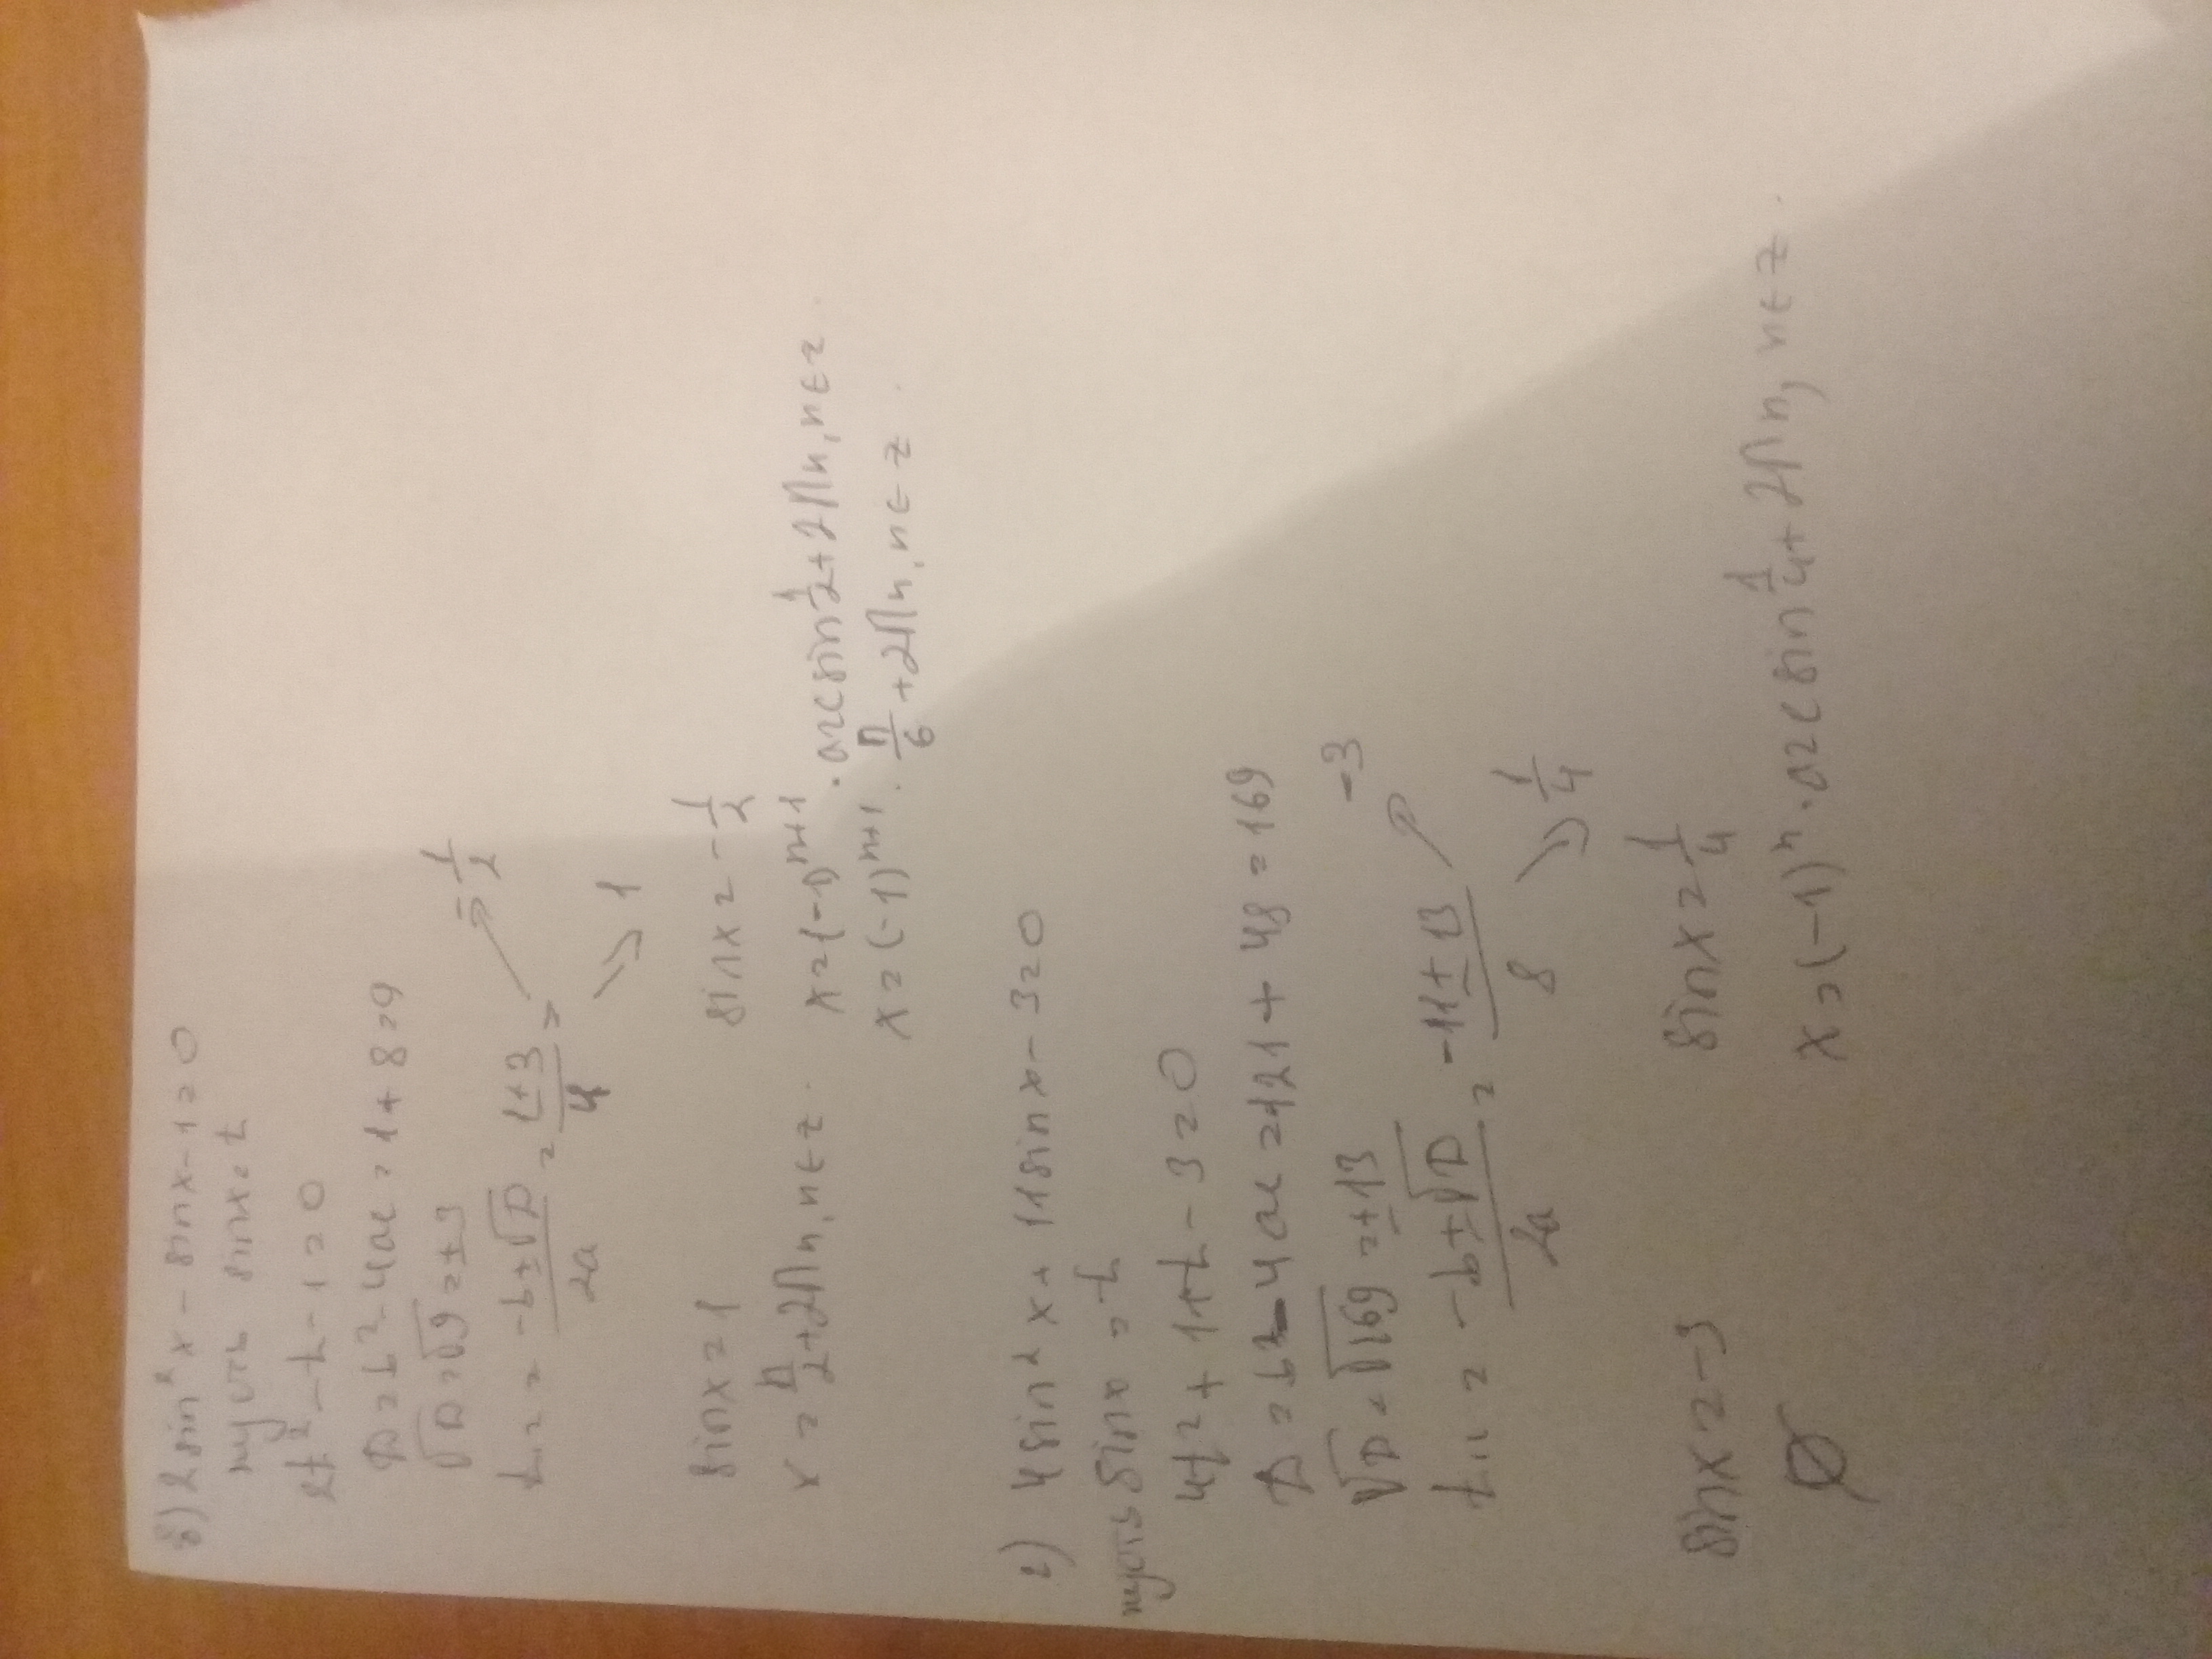 в) 2sin²x - sinx - 1 = 0
пусть sinx = t
2t² - t - 1 = 0
D = b² - 4ac = 1 + 8 = 9
√D = √9 = ±3
t₁,₂ = (-b ± √D)/2a = (1 ± 3)/4 = → -1/2
→ 1
sinx = 1    sinx = -1/2
x = П/2 + 2Пn, n∈z.    x = (-1)ⁿ⁺¹ · arcsin 1/2 + 2Пn, n∈z.
x = (-1)ⁿ⁺¹ · П/6 + 2Пn, n∈z.
г) 4sin²x + 11sinx - 3 = 0
пусть sinx = t
4t² + 11t - 3 = 0
D = b² - 4ac = 121 + 48 = 169
√D = √169 = ±13
t₁,₂ = (-b ± √D)/2a = (-11 ± 13)/8 → -3
→ 1/4
sinx = -3    sinx = 1/4
∅    x = (-1)ⁿ · arcsin 1/4 + 2Пn, n∈z.